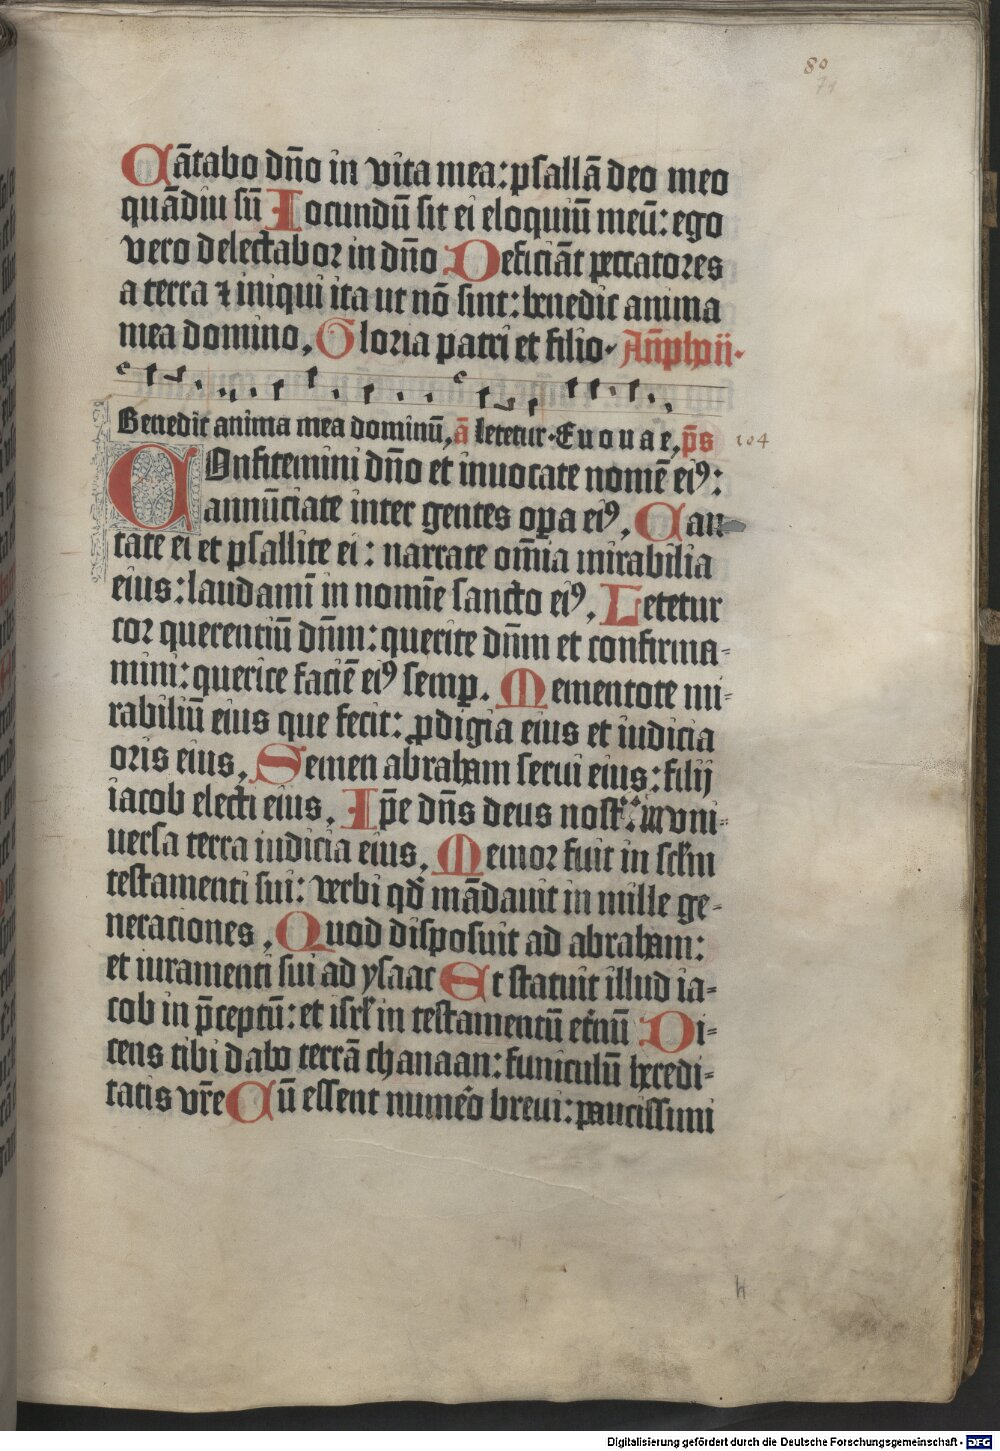 80
71
Cātabo dn̄o in vita mea: psallā deo meo
quādiu sū Iocundū sit ei eloquiū meū: ego
vero delectabor in dn̄o Deficiāt peccatores
a terra ⁊ iniqui ita ut nō sint: benedic anima
mea domino, Gloria patri et filio·
Benedic anima mea dominū, ā letetur· Euouae, ps 104
COnfitemini dn̄o et inuocate nomē eiꝰ:
annūciate inter gentes oꝑa eiꝰ, Can
tate ei et psallite ei: narrate om̄ia mirabilia
eius: laudamī in nomīe sancto eiꝰ, Letetur
cor querentiū dn̄m: querite dn̄m et confirma-
mini: querite faciē eiꝰ semꝑ. Mementote mi-
rabiliū eius que fecit: ꝓdigia eius et iudicia
oris eius, Semen abraham serui eius: filij
iacob electi eius, Ip̄e dn̄s deus nost᷑: in vni-
uersa terra iudicia eius, Memor fuit in sc̄lm
testamenti sui: verbi qd̄ mādauit in mille ge-
neraciones, Quod disposuit ad abraham:
et iuramenti sui ad ysaac Et statuit illud ia-
cob in p̄ceptū: et isrl̄ in testamentū et̄nū Di-
cens tibi dabo terrā chanaan: funiculū heredi-
tatis vr̄e Cū essent numēo breui: paucissimi
h
Digitalisierung gefördert durch die Deutsche Forschungsgemeinschaft - DFG